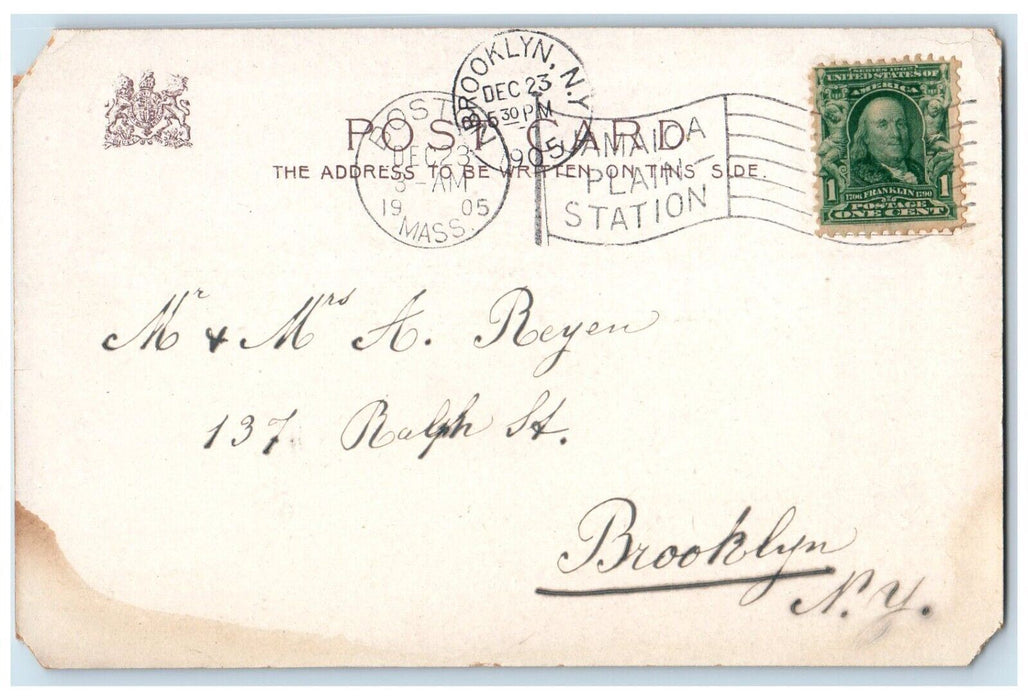 BROOKLYN, N.Y.
DEC 23
5 30 PM
1905
BOSTON
DEC 23
3-AM
19 05
MASS.
JAMAICA
PLAIN
STATION
POST CARD
THE ADDRESS TO BE WRITTEN ON THIS SIDE.
SERIES 1902
UNITED STATES OF
AMERICA
1706 FRANKLIN 1790
1 POSTAGE 1
ONE CENT
Mr & Mrs A. Reyen
137 Ralph St.
Brooklyn
N.Y.